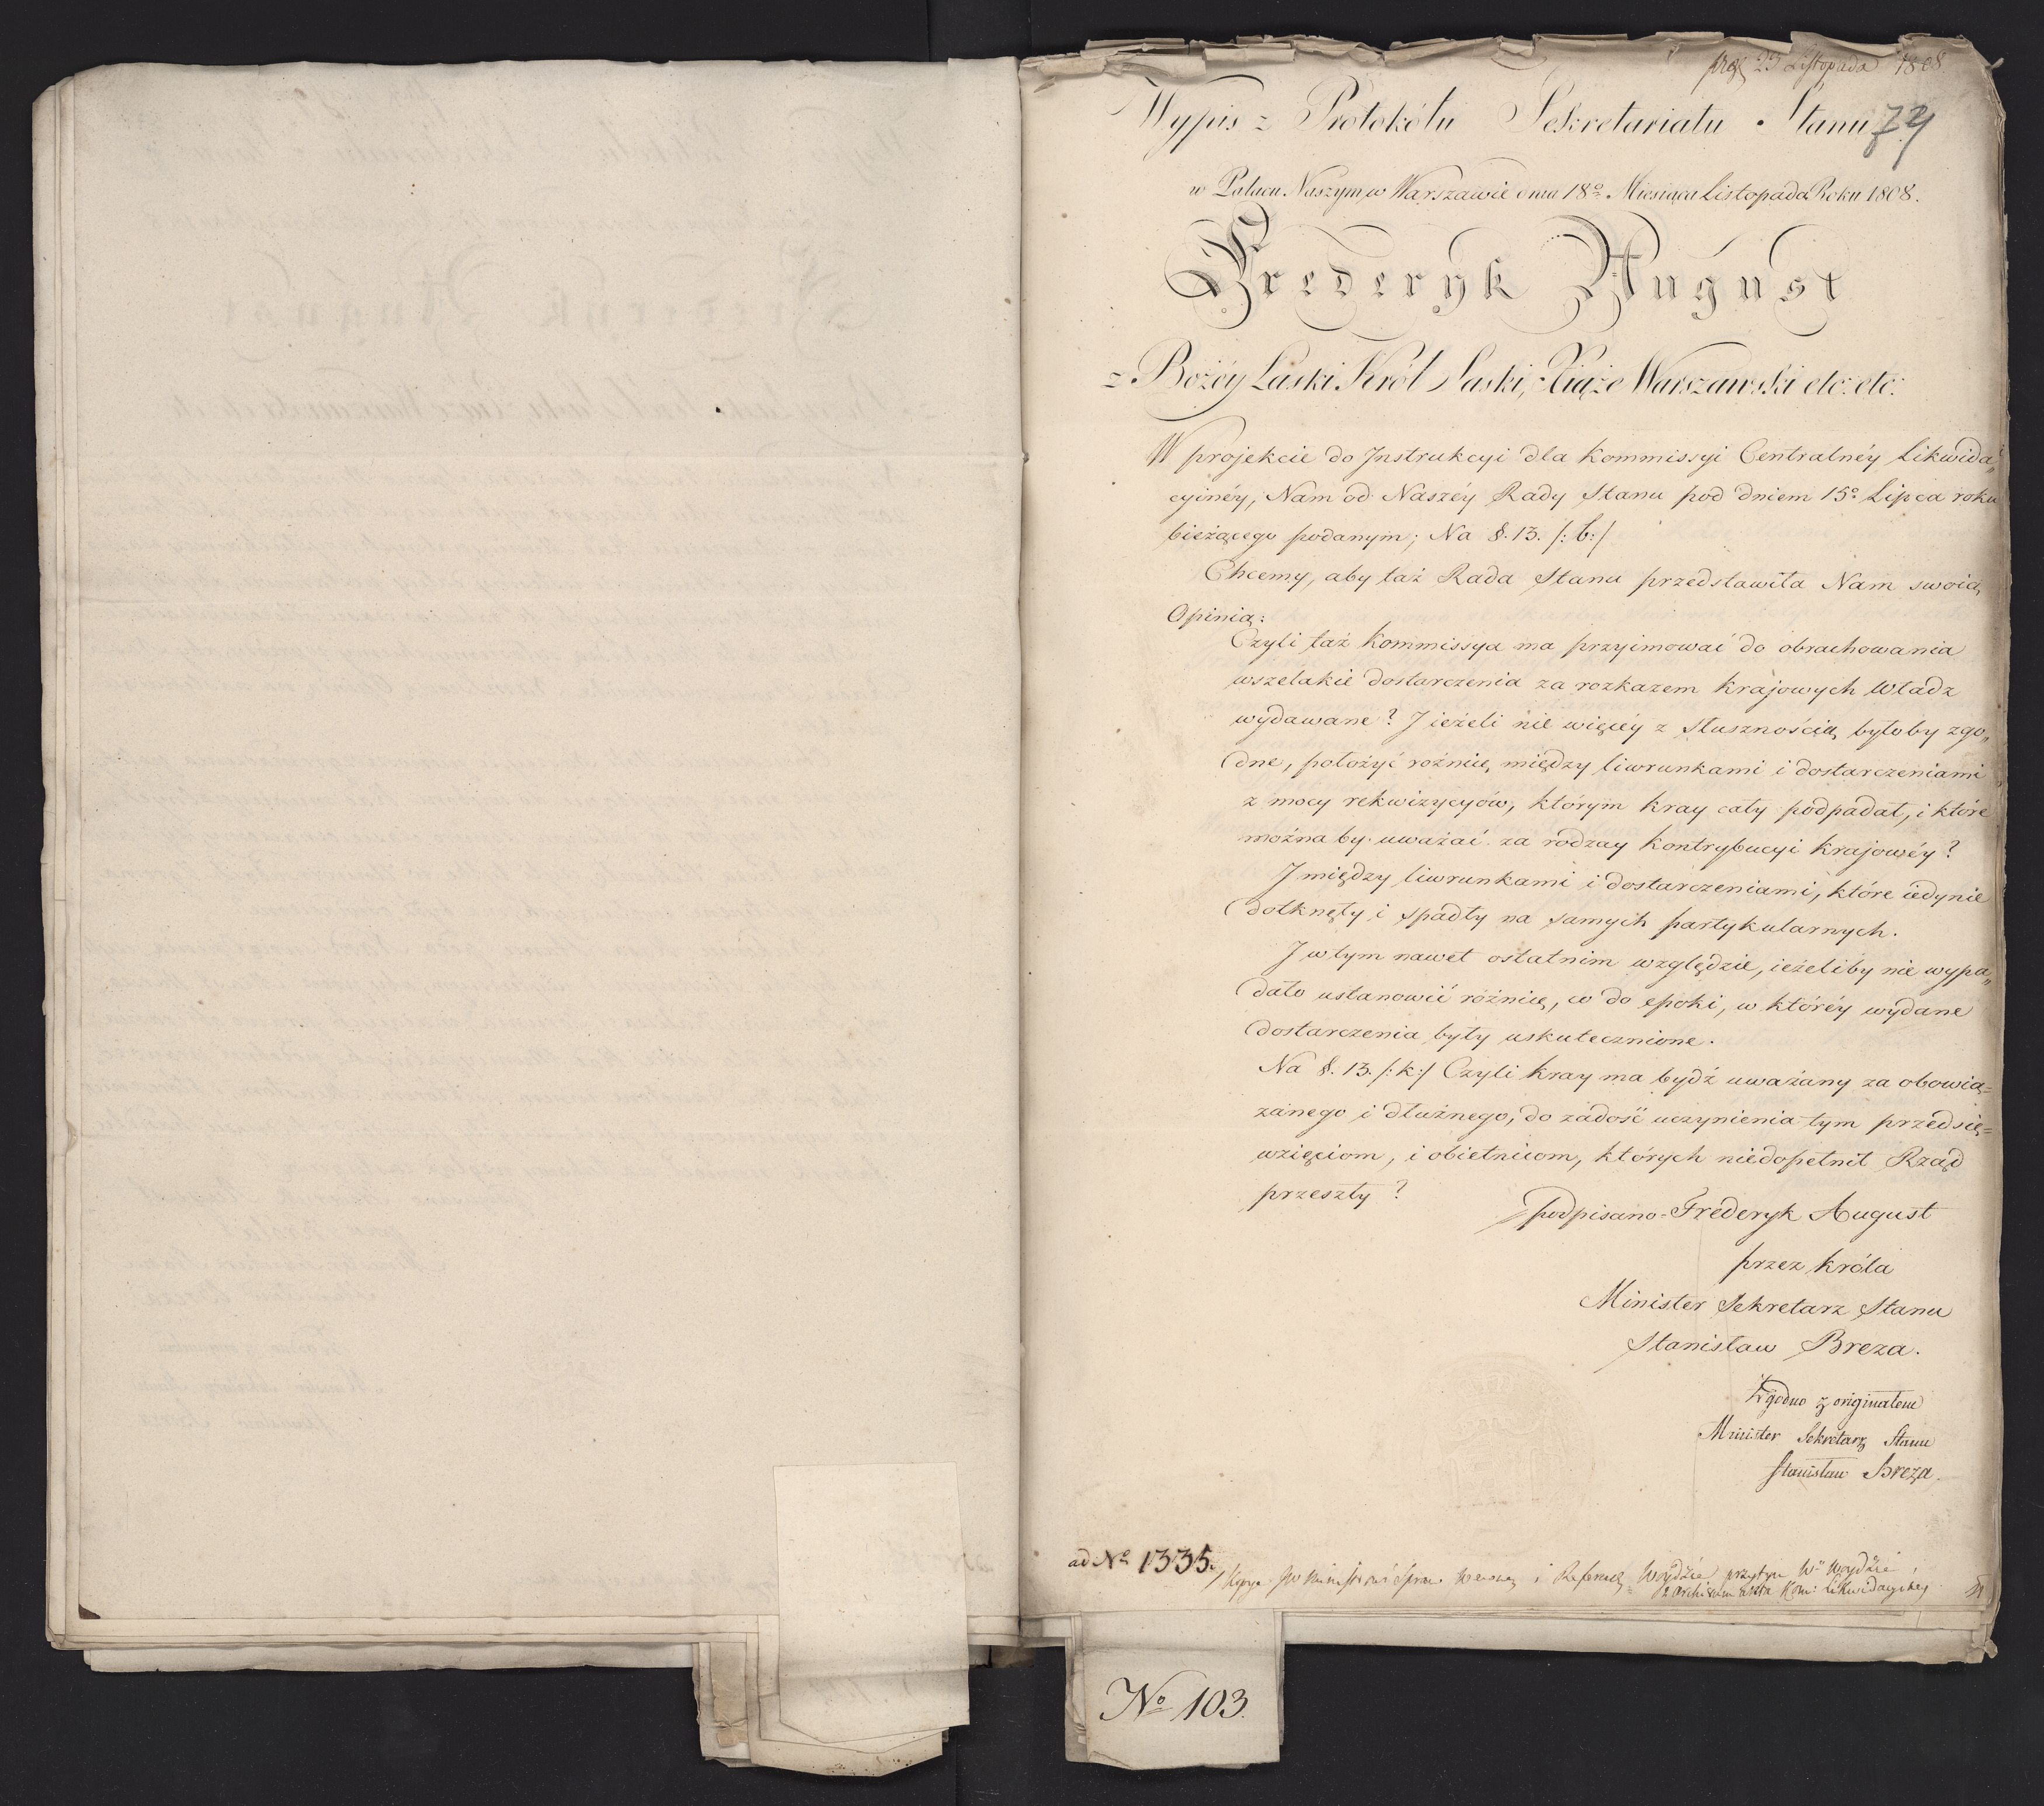 29 Listopada 1808
Wypis z Protokólu Sekretariatu Stanu
79
w Pałacu Naszym w Warszawie dnia 18º Miesiąca Listopada Roku 1808.
Frederyk August
z Bożéy Łaski Król Saski, Xiąże Warszawski etc: etc:
W projekcie do Jnstrukcyi dla Kommissyi Centralnéy Likwida„
cyinéy, Nam od Naszéy Rady Stanu pod dniem 15º Lipca roku
bieżącego podanym; Na §. 13. /: b:/
Chcemy, aby taż Rada Stanu przedstawiła Nam swoią
Opinią:
Czyli taż Kommissya ma przyimować do obrachowania
wszélakie dostarczenia za rozkazem krajowych Władz
wydawane? J ieżeli nie więcéy z słusznością byłoby zgo„
dne, położyć rożnicę między liwrunkami i dostarczeniami
z mocy rekwizycyów, którym kray cały podpadał, i które
możnaby uważać za rodzay kontrybucyi krajowéy?
J między liwrunkami i dostarczeniami, które iedynie
dotknęły i spadły na samych partykularnych.
J w tym nawet ostatnim względzie, ieżeliby nie wypa„
dało ustanowić różnicę, co do epoki, w któréy wydane
dostarczenia były uskutecznione.
Na §. 13. /: k:/ Czyli kray ma bydź uważany za obowią=
zanego i dłużnego, do zadość uczynienia tym przedsię=
wzięciom, i obietnicom, których niedopełnił Rząd
przeszły?
podpisano - Frederyk August
przez Króla
Minister Sekretarz Stanu
Stanisław Breza.
Zgodno z originałem
Minister Sekretarz Stanu
Stanisław Breza.
ad Nº 1335.
i Woydzie przytym Wº Woydzie
Kom: likwidacyiney
Nº 103.